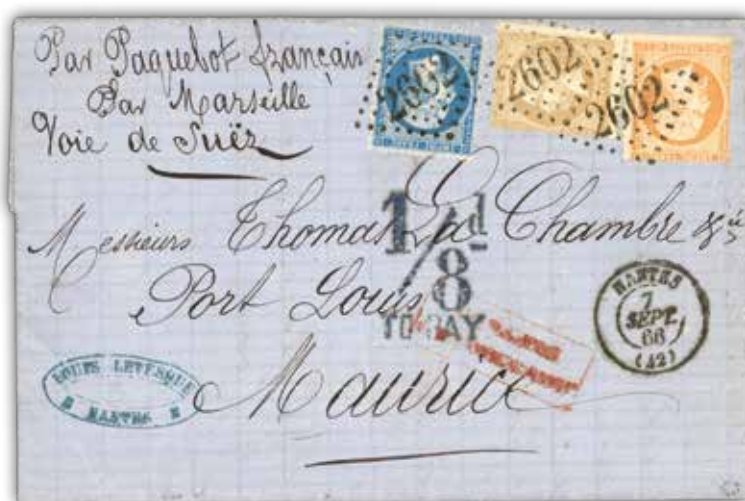 Par Paquebot français
Par Marseille
Voie de Suëz
2602
2602
2602
Messieurs Thomas La Chambe & Cie
Port Louis
Maurice
1/8d
TO PAY
NANTES
7
SEPT.
66
(42)
LOUIS LEVESQUE
NANTES